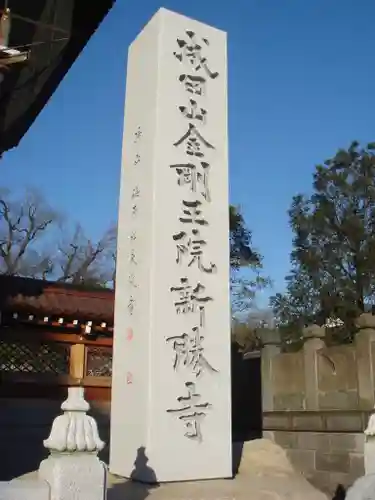 成田山金剛王院新勝寺